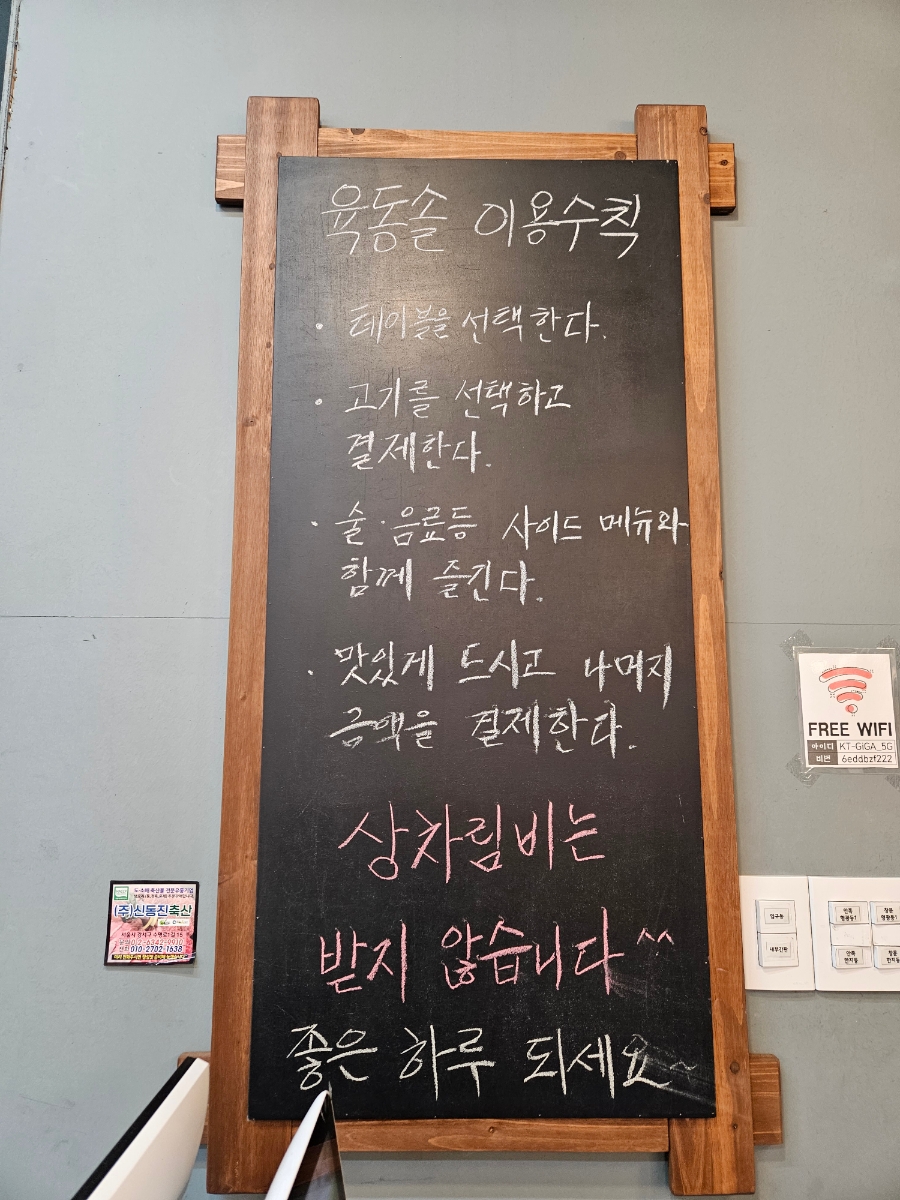 육동솔 이용수칙
· 테이블을 선택한다.
· 고기를 선택하고
결제한다.
· 술·음료등 사이드 메뉴와
함께 즐긴다.
· 맛있게 드시고 나머지
금액을 결제한다.
상차림비는
받지 않습니다^^
좋은 하루 되세요~
FREE WIFI
아이디 KT-GiGA_5G
비번 6eddbzf222
도·소매 축산물 전문유통기업
(주)신동진축산
010-2702-1638
입구등
내부간판
안쪽